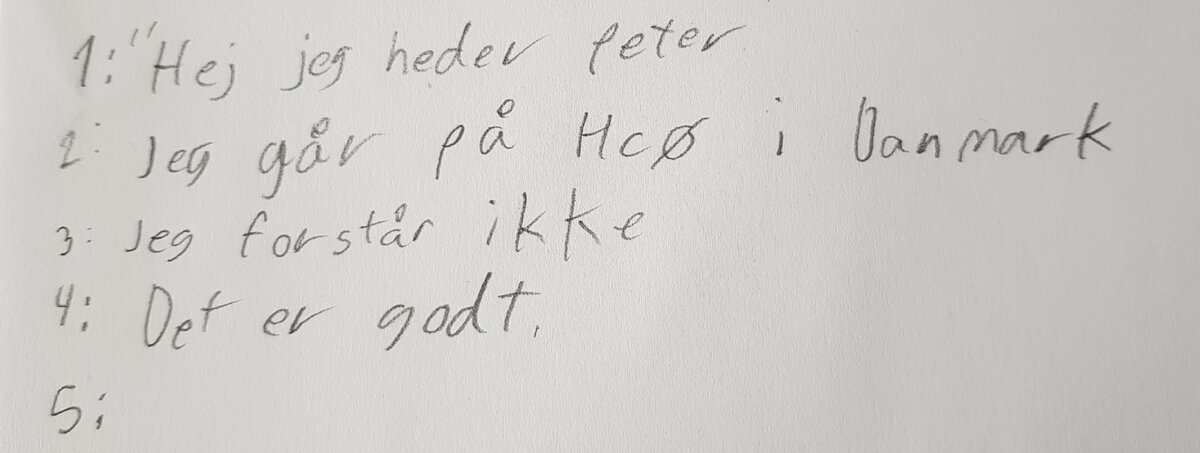 1: "Hej jeg heder Peter
2: Jeg går på HCØ i Danmark
3: Jeg forstår ikke
4: Det er godt.
5: